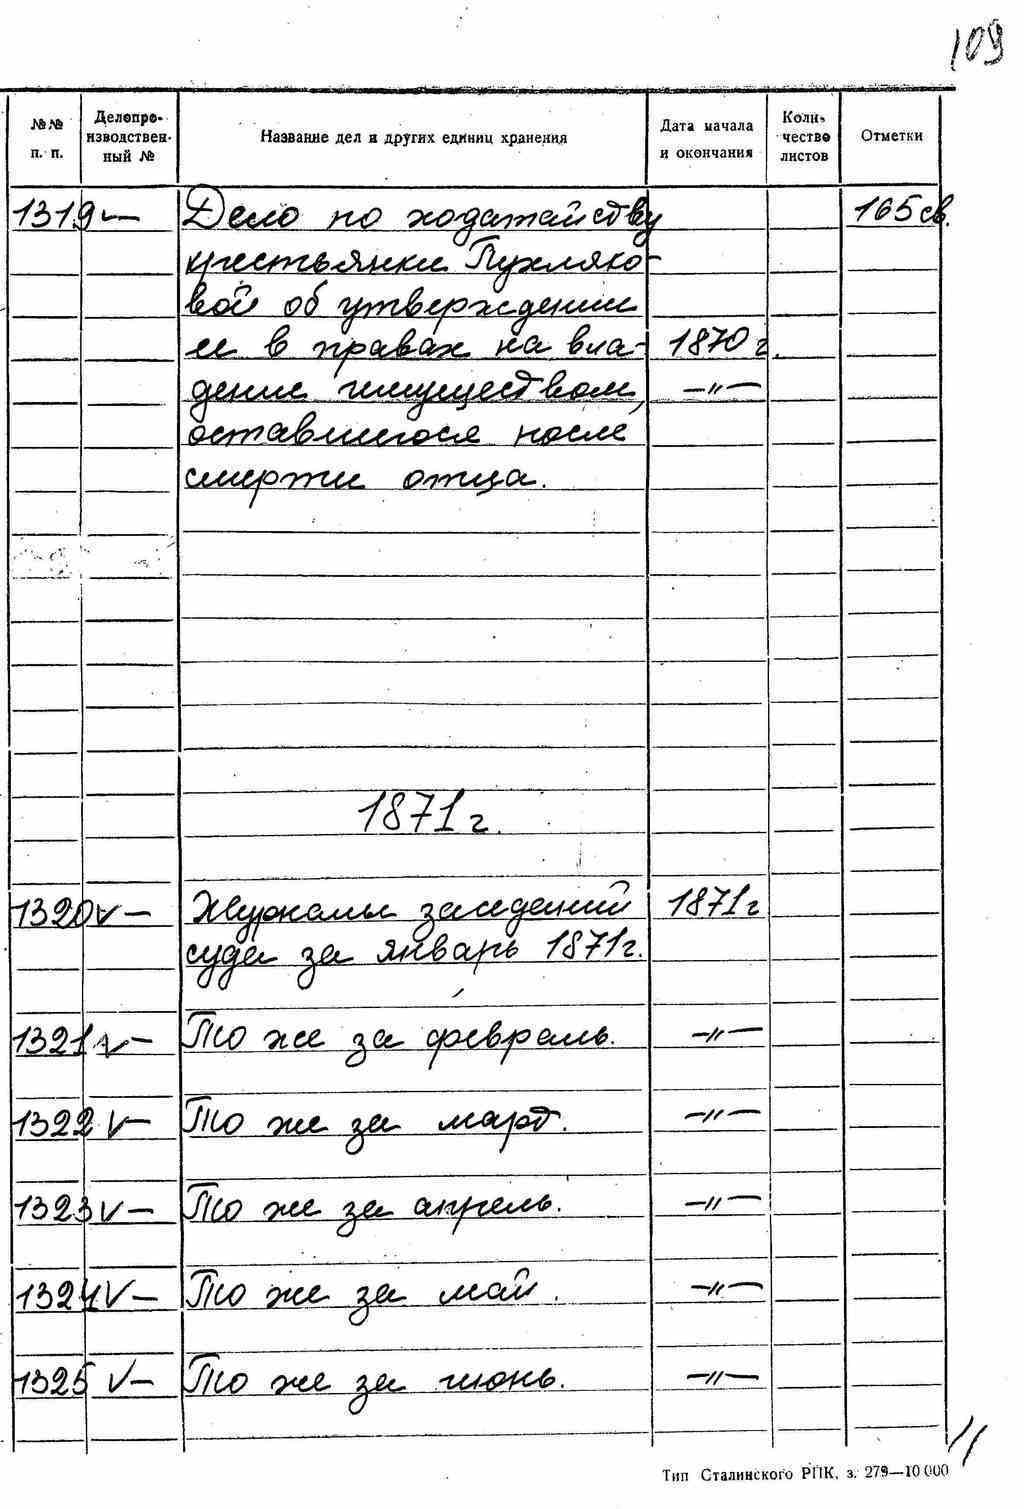 109
№№ п. п. Делопроизводственный № Название дел и других единиц хранения Дата начала и окончания Количество листов Отметки
1319 — Дело по ходатайству 165 св.
крестьянки Пухляко-
вой об утверждении
ее в правах на вла- 1870 г.
дение имуществом, —"—
оставшегося после
смерти отца.
1871 г.
1320 v — Журналы заседений 1871 г
суда за январь 1871 г.
1321 v — То же за февраль. —"—
1322 v — То же за март. —"—
1323 v — То же за апрель. —"—
1324 v — То же за май. —"—
1325 v — То же за июнь. —"—
Тип Сталинского РПК, з. 279—10 000